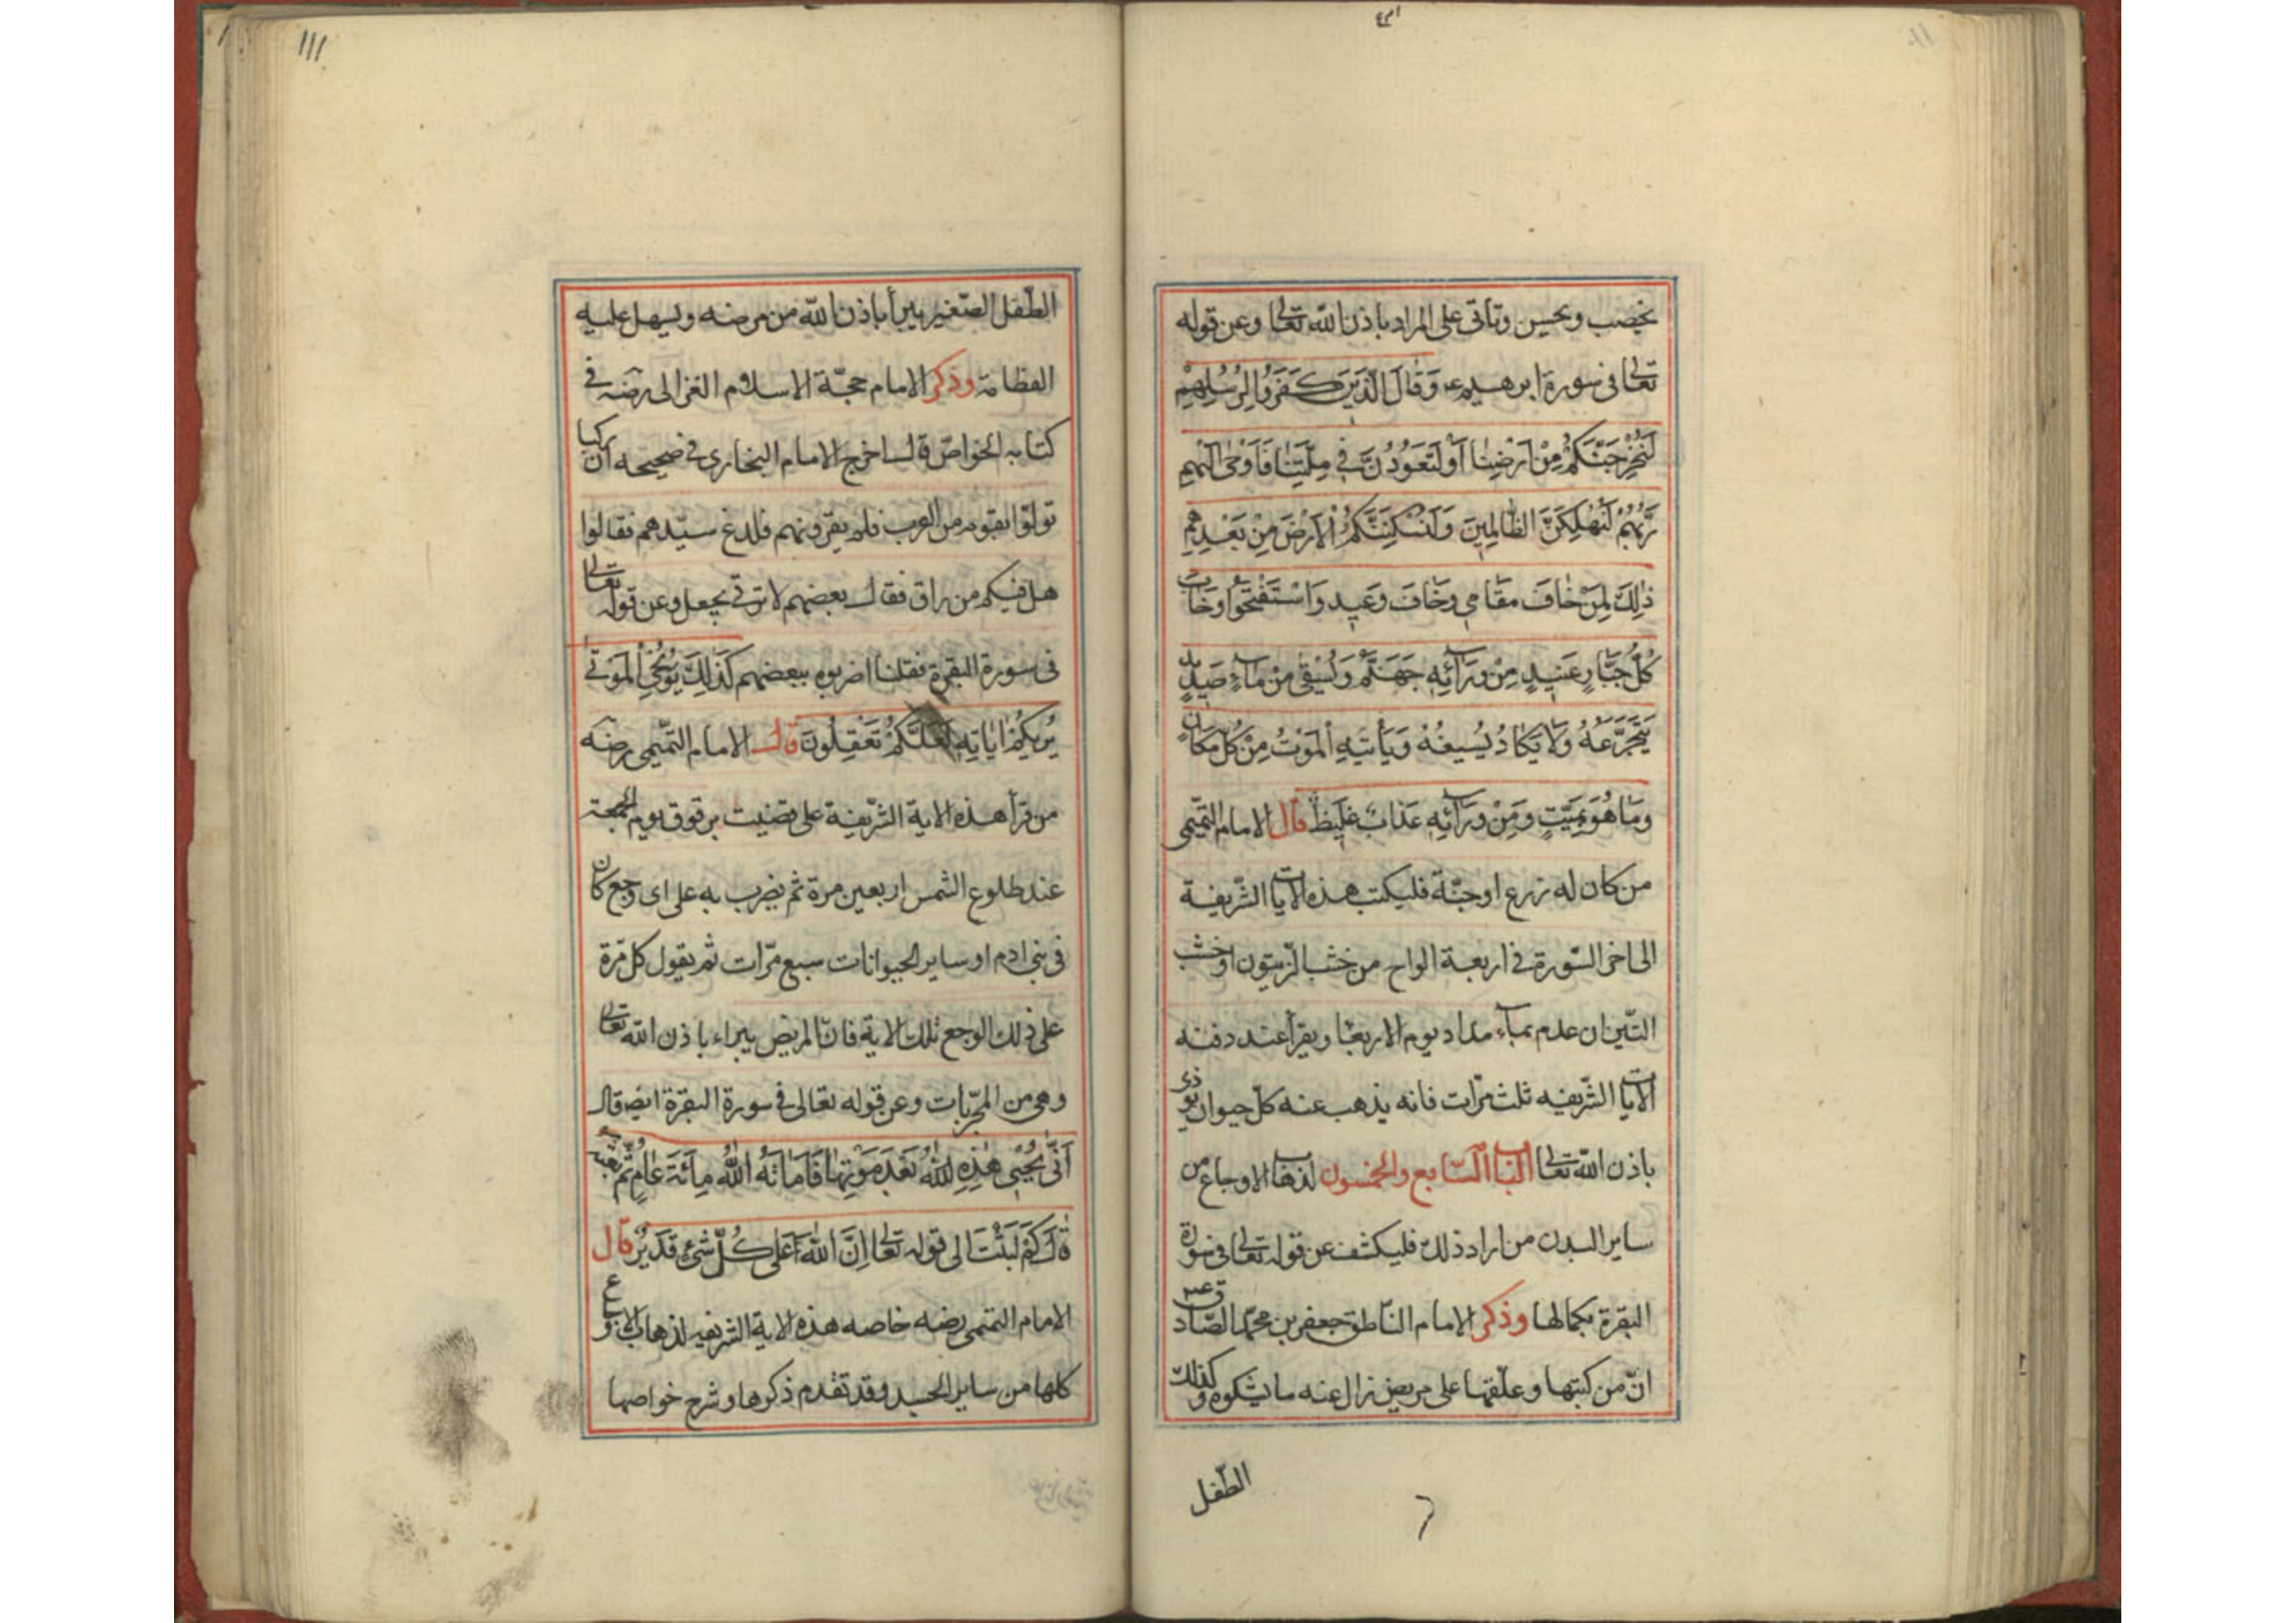 يخصب ويحسن وتاتى على المراد باذن الله تعالى وعن قوله
تعالى فى سورة ابرهيم وَقَالَ الَّذِينَ كَفَرُوا لِرُسُلِهِمْ
لَنُخْرِجَنَّكُمْ مِنْ اَرْضِنَا اَوْ لَتَعُودُنَّ فِى مِلَّتِنَا فَاَوْحَى اِلَيْهِمْ
رَبُّهُمْ لَنُهْلِكَنَّ الظَّالِمِينَ وَلَنُسْكِنَنَّكُمُ الْاَرْضَ مِنْ بَعْدِهِمْ
ذٰلِكَ لِمَنْ خَافَ مَقَامِى وَخَافَ وَعِيدِ وَاسْتَفْتَحُوا وَخَابَ
كُلُّ جَبَّارٍ عَنِيدٍ مِنْ وَرَآئِهِ جَهَنَّمُ وَيُسْقَى مِنْ مَاءٍ صَدِيدٍ
يَتَجَرَّعُهُ وَلَا يَكَادُ يُسِيغُهُ وَيَأْتِيهِ الْمَوْتُ مِنْ كُلِّ مَكَانٍ
وَمَا هُوَ بِمَيِّتٍ وَمِنْ وَرَآئِهِ عَذَابٌ غَلِيظٌ قال الامام التميمى
من كان له زرع او جنّة فليكتب هذه الايات الشّريفة
الى اخر السّورة فى اربعة الواح من خشب الزّيتون او خشب
التّين ان عدم بماء مداد يوم الاربعا ويقرأ عند دفنه
الايات الشّريفه ثلث مرّات فانه يذهب عنه كلّ حيوان يوذى
باذن الله تعالى الباب السّابع والخمسون لذهاب الاوجاع من
ساير البدن من اراد ذلك فليكشف عن قوله تعالى فى سورة
البقرة بكمالها وذكر الامام النّاطق جعفر بن محمّد الصّادق
انّ من كتبها وعلّقها على مريض زال عنه ما يشكوه وكذلك
الطّفل
١١١
الطّفل الصّغير يبرأ باذن الله من مرضه ويسهل عليه
الفظامة وذكر الامام حجّة الاسلام الغزالى رضه فى
كتابه الخواصّ قال اخرج الامام البخارى فى صحيحه ان ركبا
تولوا بقوم من العرب فلم يقرونهم فلدغ سيّدهم فقالوا
هل فيكم من راق فقال بعضهم لا نرقى بجعل وعن قوله تعالى
فى سورة البقرة فقلنا اضربوه ببعضهم كَذٰلِكَ يُحْيِى الْمَوْتَى
يُرِيكُمْ اٰيَاتِهِ لَعَلَّكُمْ تَعْقِلُونَ قال الامام التّميمى رضه
من قرأ هذه الاية الشّريفة على قضيب برقوق يوم الجمعة
عند طلوع الشمس اربعين مرة ثم يضرب به على اى وجع كان
فى بنى ادم او ساير الحيوانات سبع مرّات ثم يقول كل مرّة
على ذلك الوجع تلك الاية فانّ المريض يبراء باذن الله تعالى
وهى من المجرّبات وعن قوله تعالى فى سورة البقرة ايض قال
اَنَّى يُحْيِى هٰذِهِ اللهُ بَعْدَ مَوْتِهَا فَاَمَاتَهُ اللهُ مِائَةَ عَامٍ ثُمَّ بَعَثَهُ
قَالَ كَمْ لَبِثْتَ الى قوله تعالى اِنَّ اللهَ عَلَى كُلِّ شَئٍ قَدِيرٌ قال
الامام التميمى رضه خاصه هذه الاية الشريفه لذهاب الاوجاع
كلها من ساير الجسد وقد تقدم ذكرها وشرح خواصها